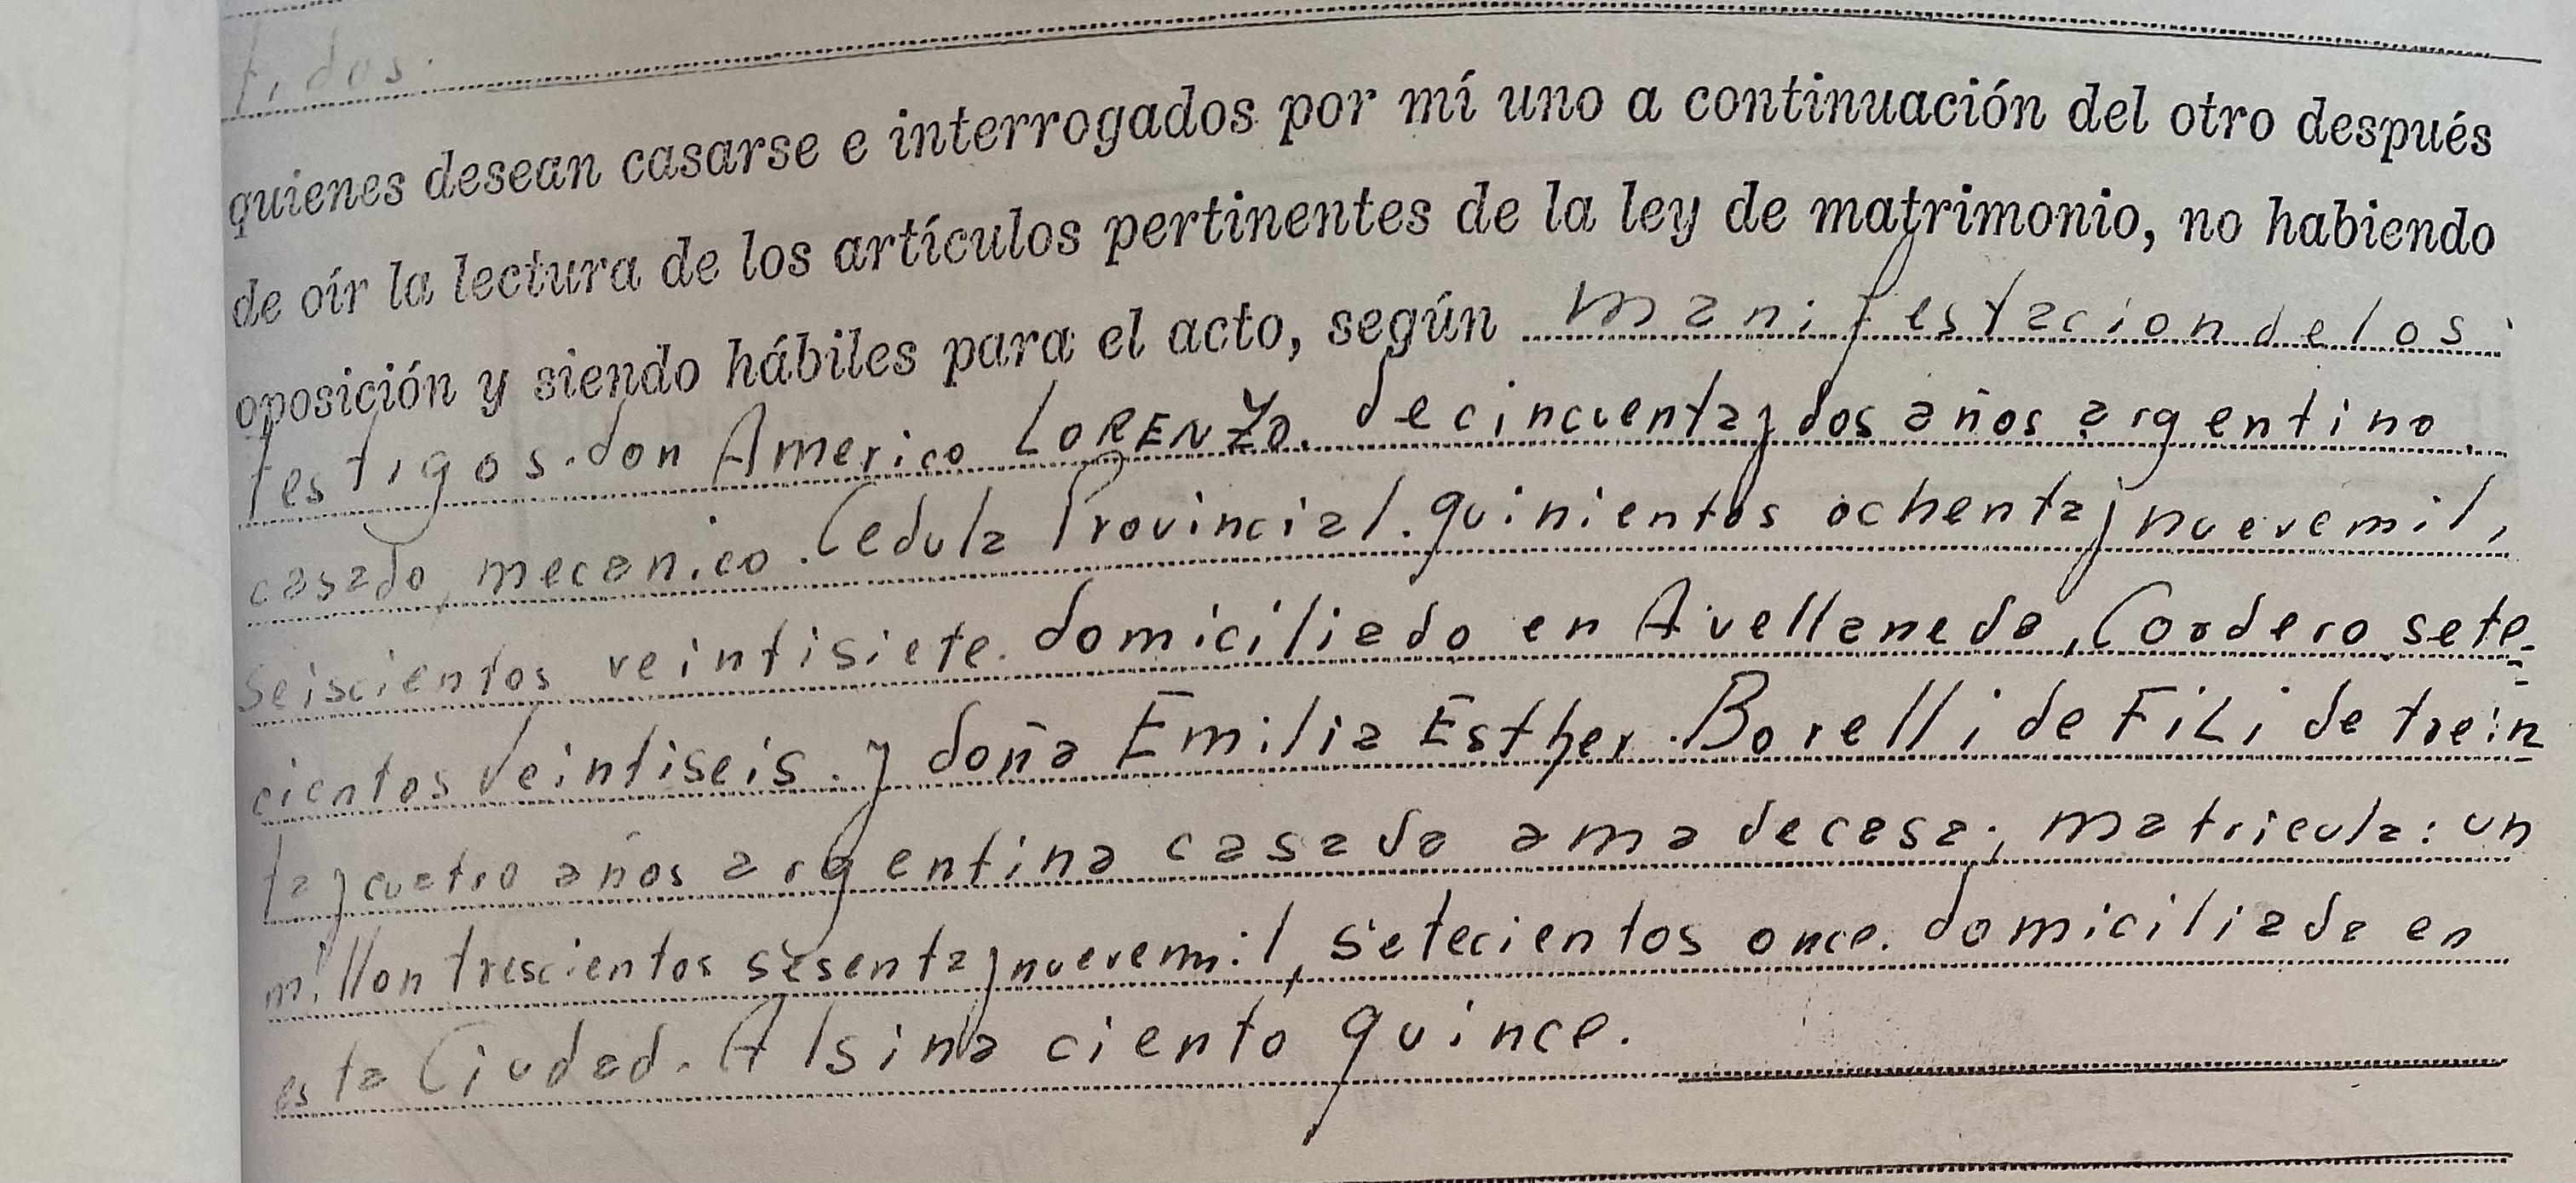 tidos.
quienes desean casarse e interrogados por mí uno a continuación del otro después
de oír la lectura de los artículos pertinentes de la ley de matrimonio, no habiendo
oposición y siendo hábiles para el acto, según manifestacion de los
testigos. don Americo LORENZO. de cincuenta y dos años argentino
casado, mecanico. Cedula Provincial. quinientos ochenta y nueve mil,
seiscientos veintisiete. domiciliado en Avellaneda, Cordero sete=
cientos veintiseis. y doña Emilia Esther Borelli de FiLi de trein
ta y cuatro años argentina casada ama de casa; matricula: un
millon trescientos sesenta y nueve mil, setecientos once. domiciliada en
esta Ciudad. Alsina ciento quince.